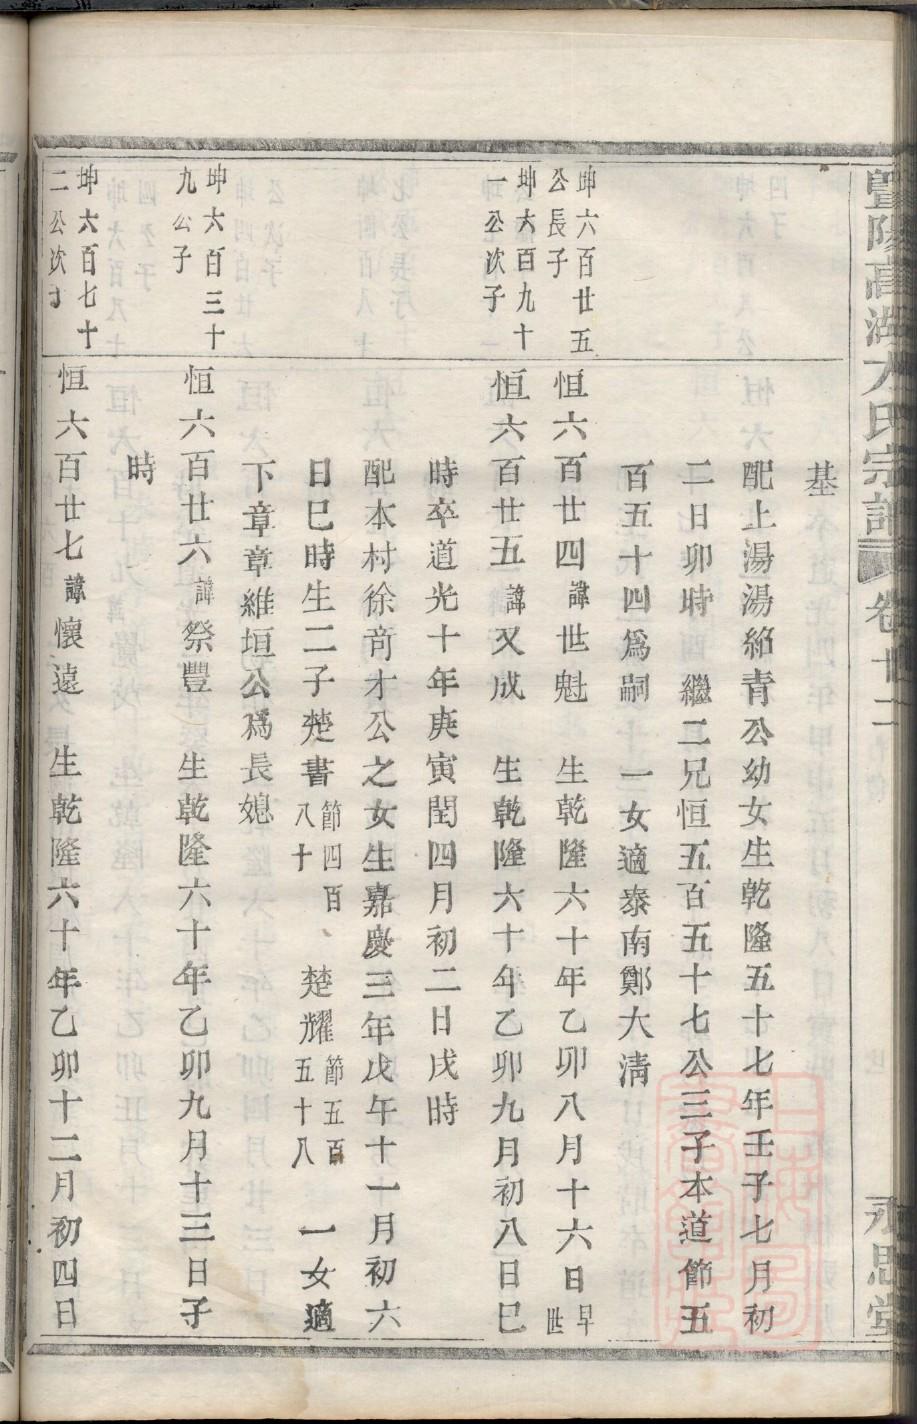 暨陽高湖方氏宗譜 卷廿二 永思堂
基
配上湯湯紹青公幼女生乾隆五十七年壬子七月初
二日卯時 繼二兄恒五百五十七公三子本道節五
百五十四爲嗣 一女適泰南鄭大淸
坤六百廿五公長子 恒六百廿四諱世魁 生乾隆六十年乙卯八月十六日早世
坤六百九十一公次子 恒六百廿五諱又成 生乾隆六十年乙卯九月初八日巳
時卒道光十年庚寅閏四月初二日戌時
配本村徐奇才公之女生嘉慶三年戊午十一月初六
日巳時生二子楚書節四百八十、楚耀節五百五十八 一女適
下章章維垣公爲長媳
坤六百三十九公子 恒六百廿六諱祭豐 生乾隆六十年乙卯九月十三日子
時
坤六百七十二公次子 恒六百廿七諱懷遠 生乾隆六十年乙卯十二月初四日